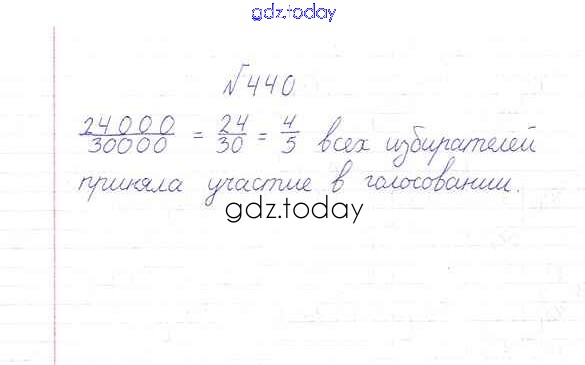 gdz.today
№440
24000/30000 = 24/30 = 4/5 всех избирателей
приняла участие в голосовании.
gdz.today